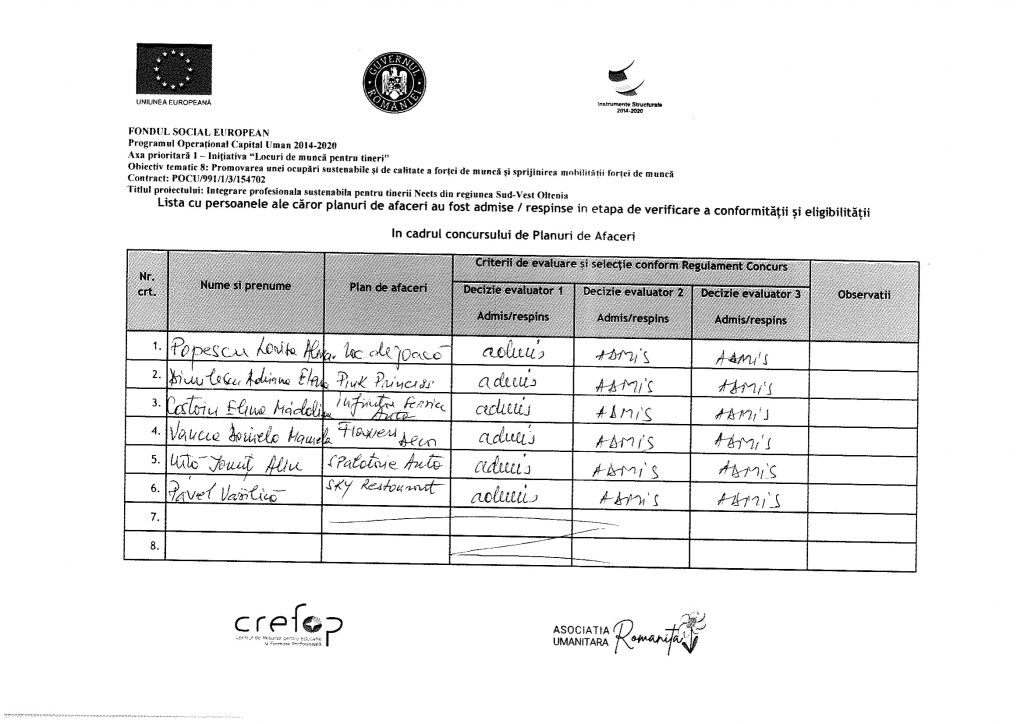 UNIUNEA EUROPEANĂ
GUVERNUL ROMÂNIEI
Instrumente Structurale
2014-2020
FONDUL SOCIAL EUROPEAN
Programul Operațional Capital Uman 2014-2020
Axa prioritară 1 – Inițiativa "Locuri de muncă pentru tineri"
Obiectiv tematic 8: Promovarea unei ocupări sustenabile și de calitate a forței de muncă și sprijinirea mobilității forței de muncă
Contract: POCU/991/1/3/154702
Titlul proiectului: Integrare profesionala sustenabila pentru tinerii Neets din regiunea Sud-Vest Oltenia
Lista cu persoanele ale căror planuri de afaceri au fost admise / respinse in etapa de verificare a conformității și eligibilității
In cadrul concursului de Planuri de Afaceri
Nr. crt. Nume si prenume Plan de afaceri Criterii de evaluare și selecție conform Regulament Concurs Observatii
Decizie evaluator 1 Decizie evaluator 2 Decizie evaluator 3
Admis/respins Admis/respins Admis/respins
1. Popescu Alina Loc de joacă admis ADMIS ADMIS
2. Adriana Elena Pink Princess admis ADMIS ADMIS
3. Elena Mădălina Infinitre Service Auto admis ADMIS ADMIS
4. Manuela Flowers Decor admis ADMIS ADMIS
5. Ionuț Alin Spălătorie Auto admis ADMIS ADMIS
6. Pavel Vasilică SKY Restaurant admis ADMIS ADMIS
7.
8.
crefop
Centrul de Resurse pentru Educație
și Formare Profesională
ASOCIATIA
UMANITARA Romanița